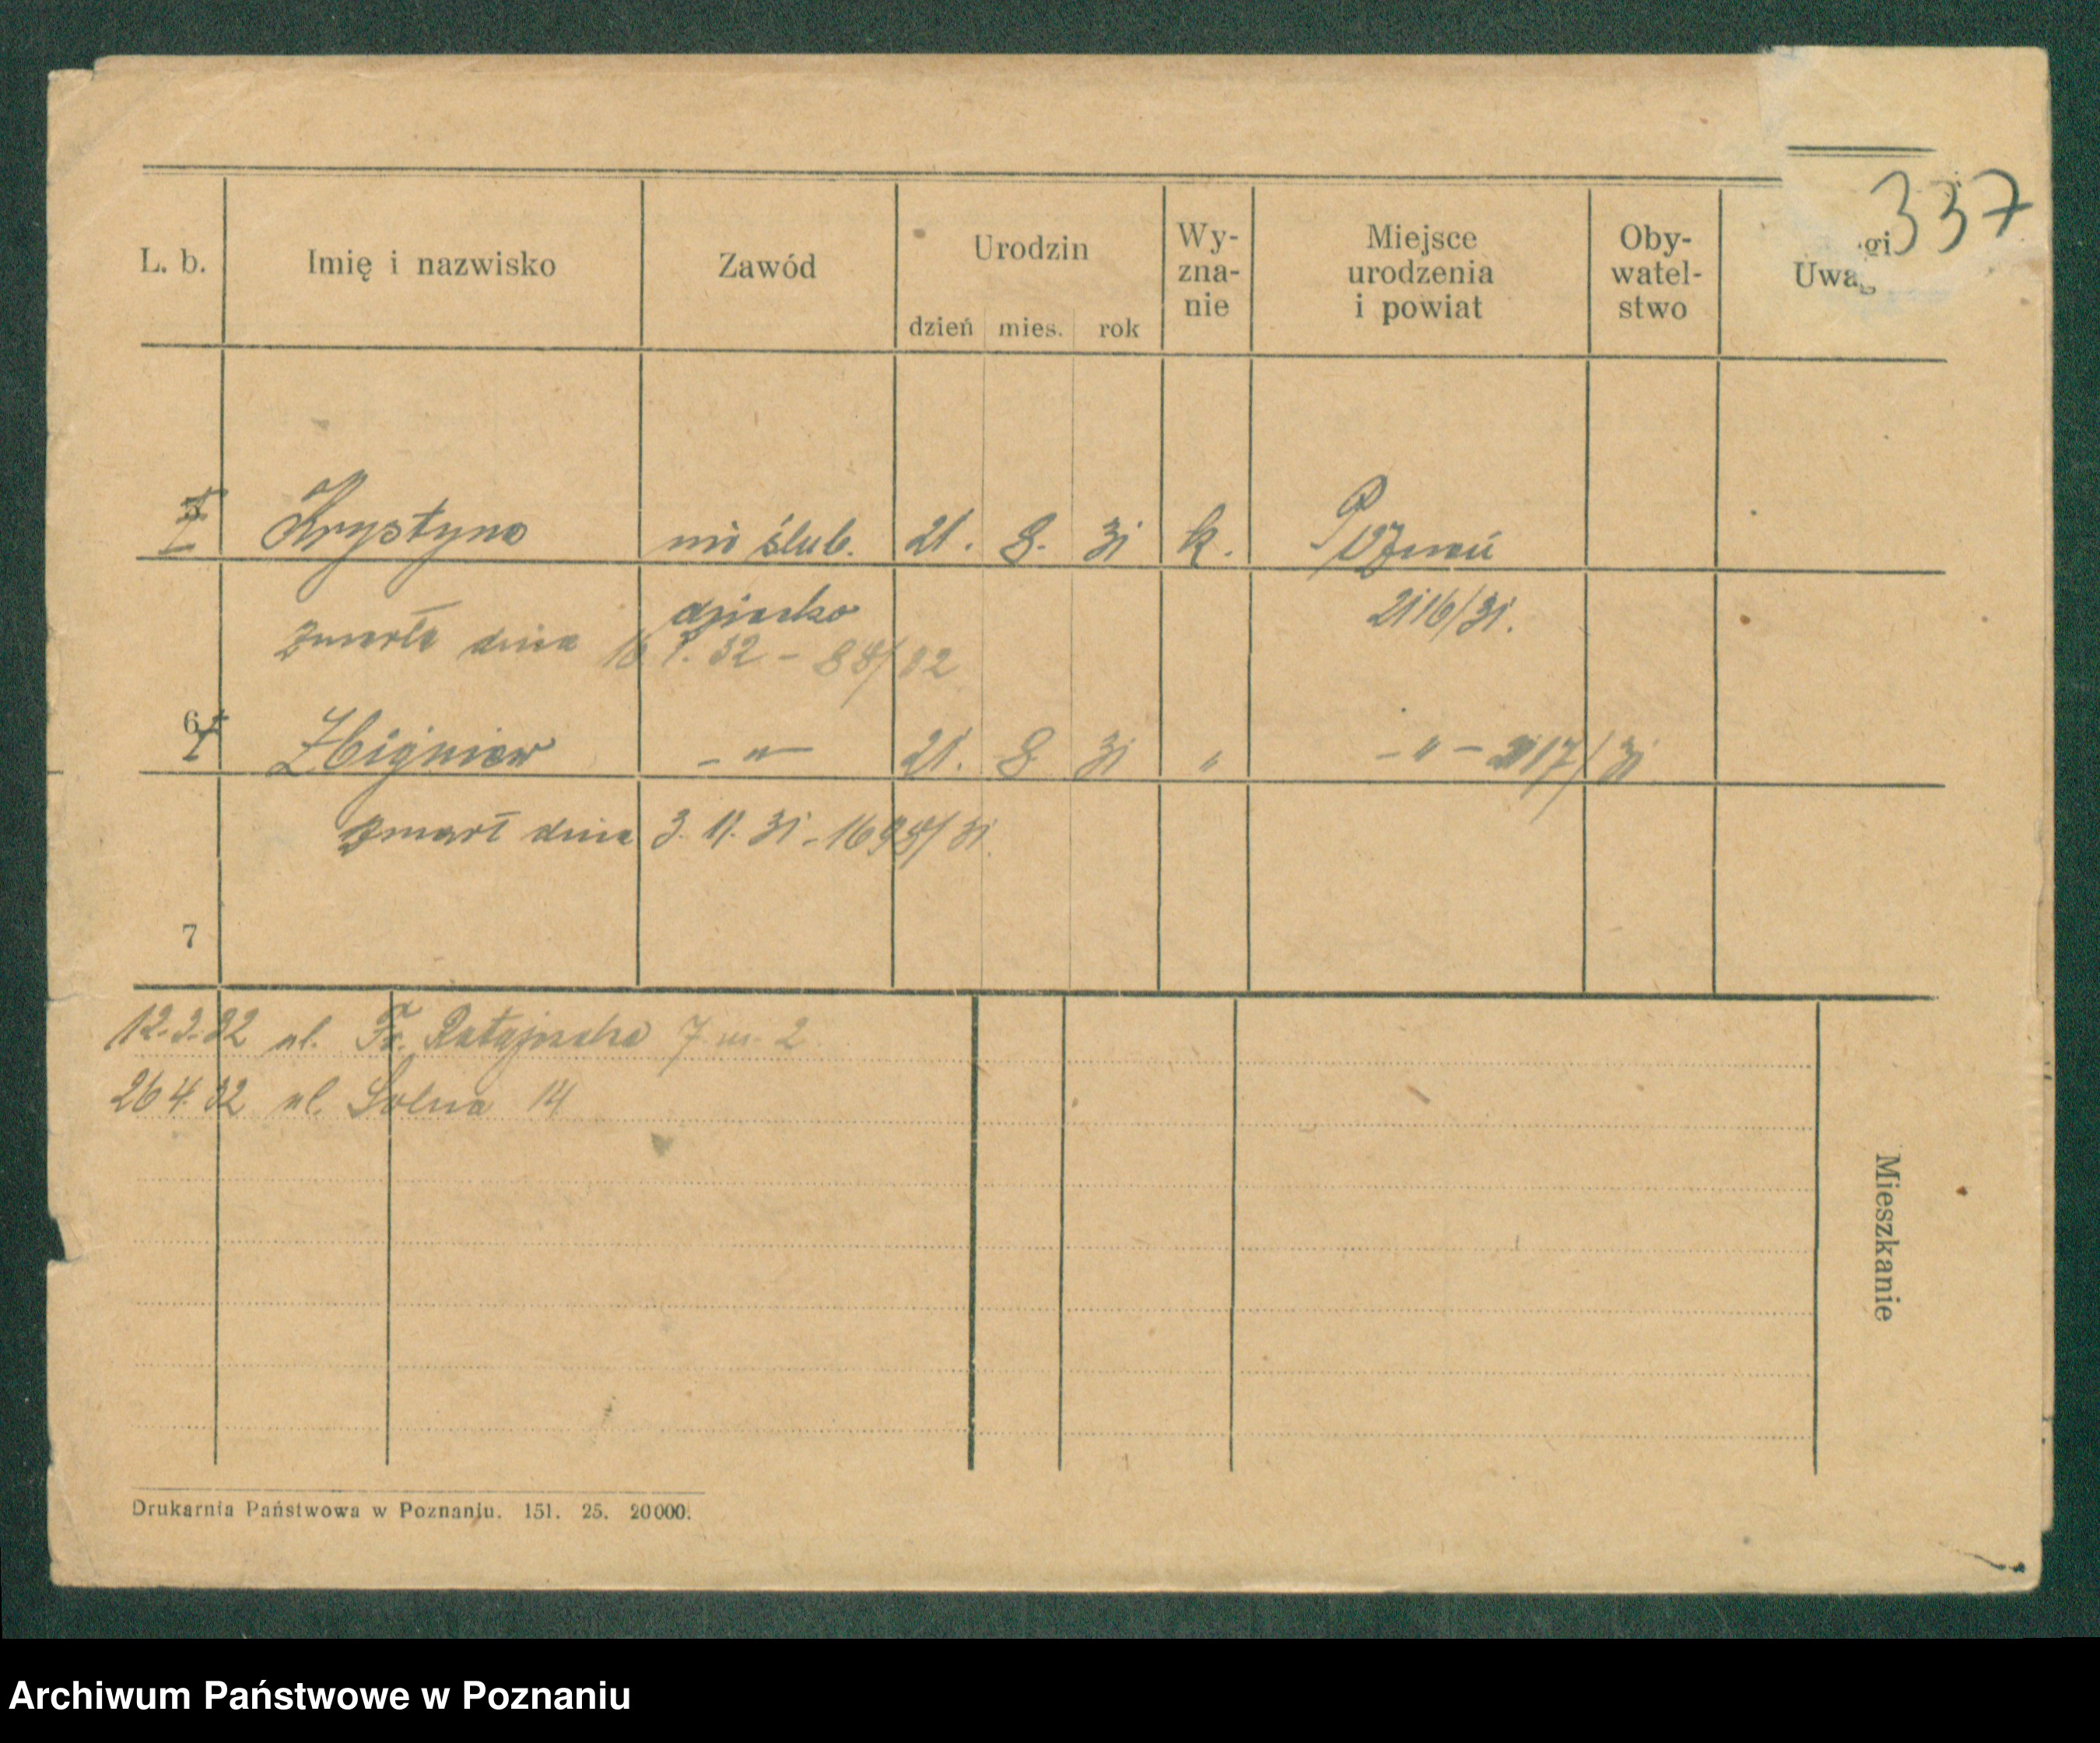 337
L. b. Imię i nazwisko Zawód Urodzin dzień mies. rok Wy- zna- nie Miejsce urodzenia i powiat Oby- watel- stwo Uwagi
Krystyna ślub. 21. 8. 31 k. Poznań
dziecko 2116/31.
zmarła dnia 32 - 88/32
6 Zbigniew - " - 21. 8 31 " - " - 2117/31
zmarł dnia 3. 11. 31 - 1698/31.
7
12.3.32 ul. Fr. Ratajczaka 7 m. 2
26 4 32 ul. Solna 14
Mieszkanie
Drukarnia Państwowa w Poznaniu. 151. 25. 20000.
Archiwum Państwowe w Poznaniu